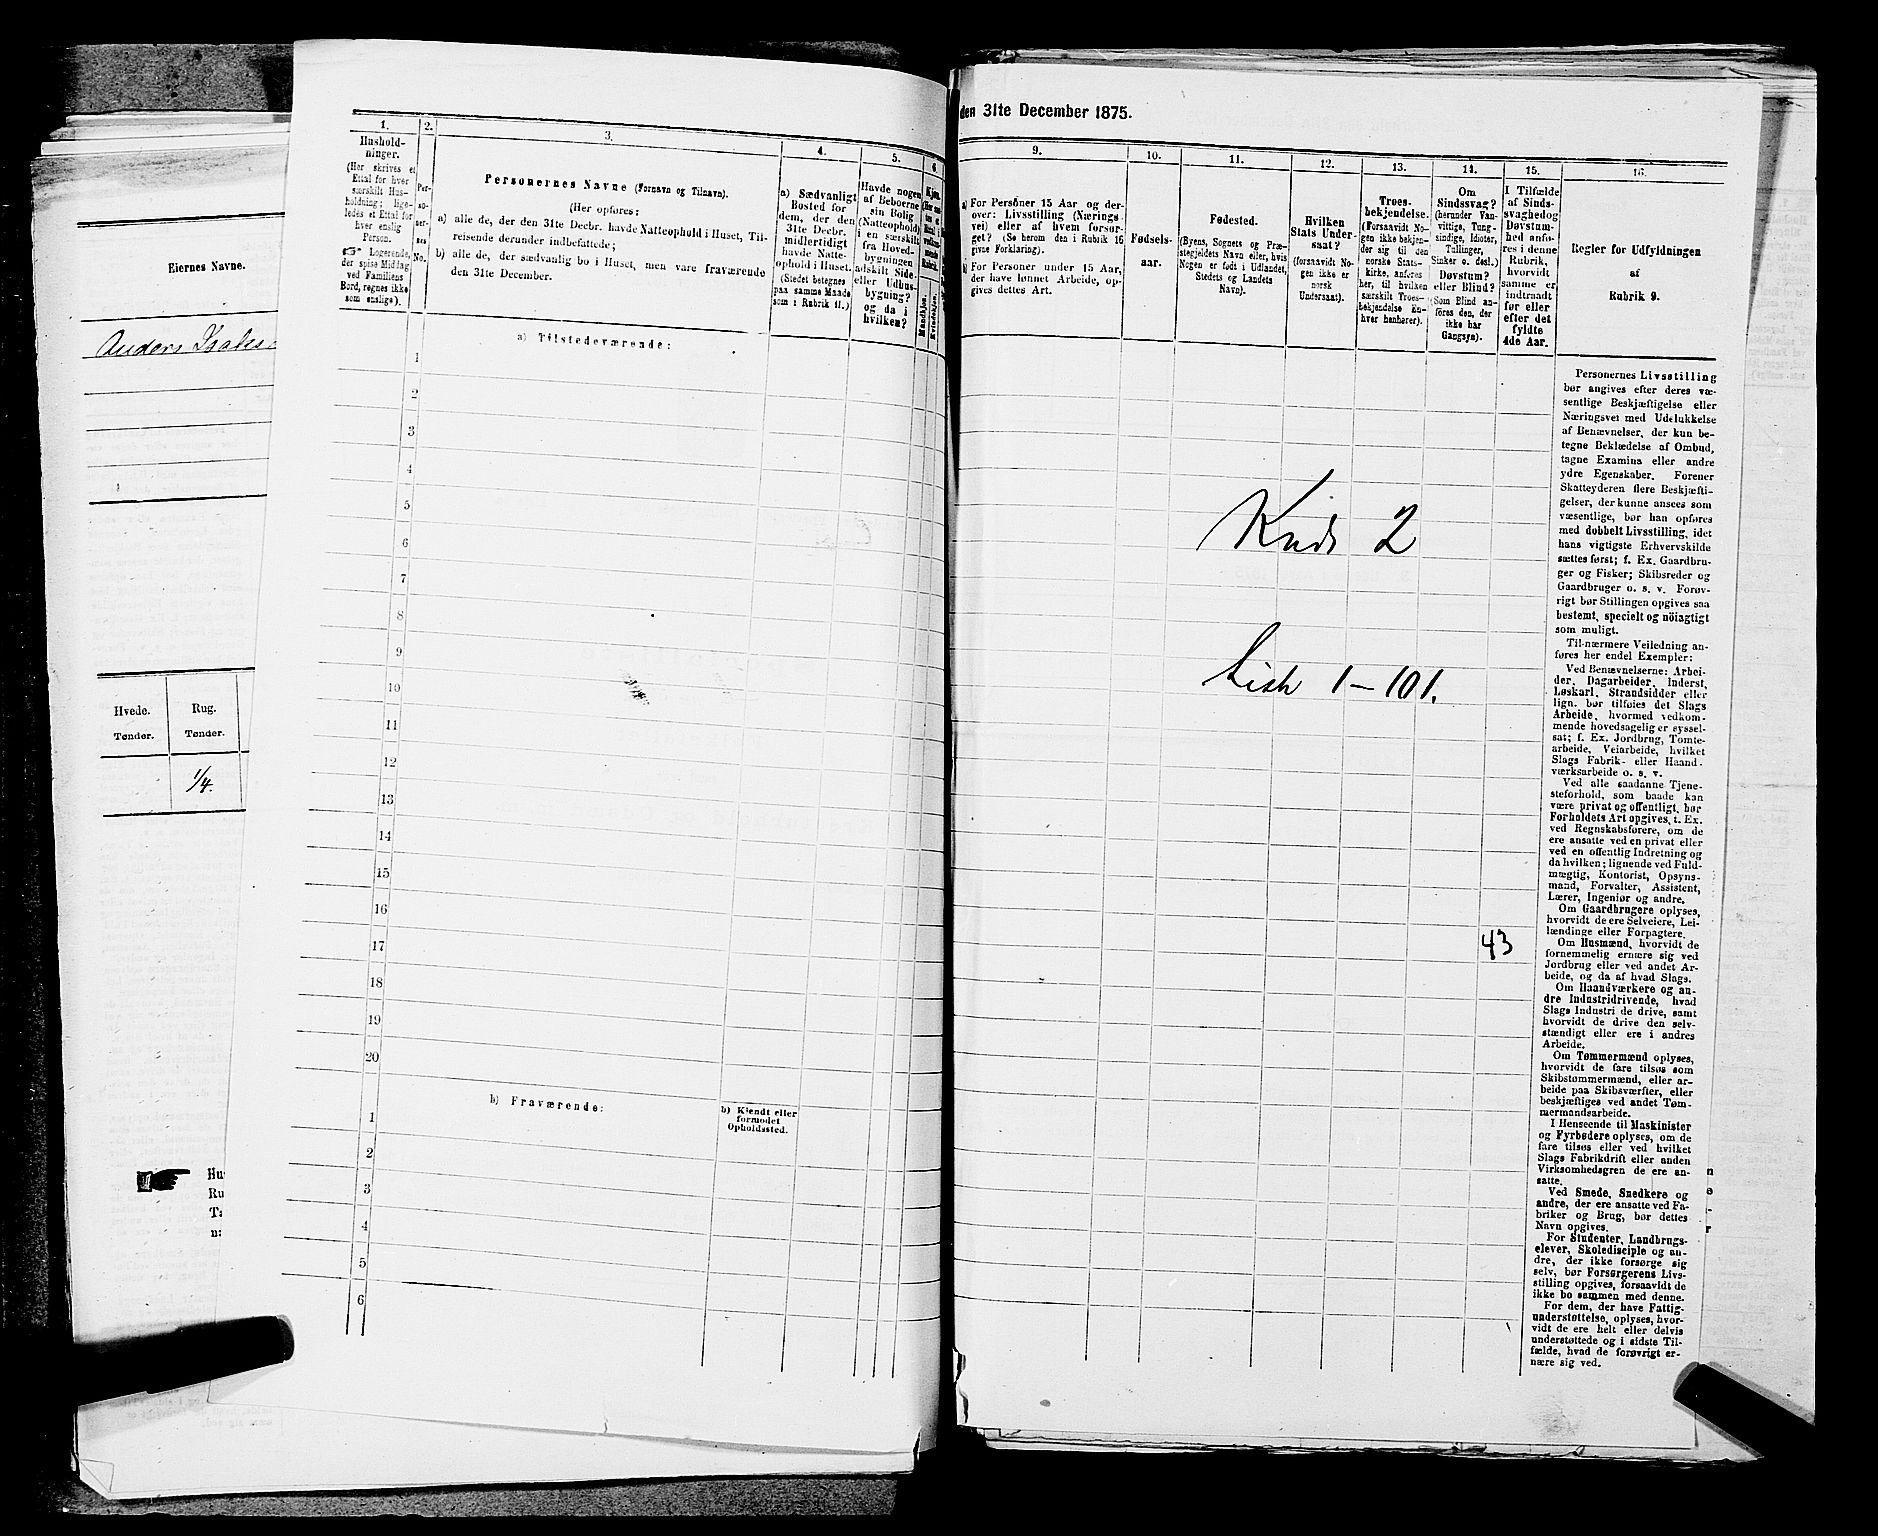 Eiernes Navne.
Anders
Hvede.
Rug.
Tønder.
Tønder.
1/4.
Hu
Ru
1.
2.
3.
4.
5.
6.
Hushold-
ninger.
(Her skrives et
Ettal for hver
særskilt Hus-
holdning; lige-
ledes et Ettal for
hver enslig
Person.
Logerende,
der spise Middag
ved Familiens
Bord, regnes ikke
som enslige).
Per-
so-
ner-
nes
No.
Personernes Navne (Fornavn og Tilnavn).
(Her opføres:
a) alle de, der den 31te Decbr. havde Natteophold i Huset, Til-
reisende derunder indbefattede;
b) alle de, der sædvanlig bo i Huset, men vare fraværende
den 31te December.
a) Sædvanligt
Bosted for
dem, der den
31te Decbr.
midlertidigt
havde Natte-
ophold i Huset.
(Stedet betegnes
paa samme Maade
som i Rubrik 11.)
Havde nogen
af Beboerne
sin Bolig
(Natteophold)
i en særskilt
fra Hoved-
bygningen
adskilt Side-
eller Udhus-
bygning?
og da i
hvilken?
Kjøn.
Mandkjøn.
Kvindekjøn.
a) Tilstedeværende:
1
2
3
4
5
6
7
8
9
10
11
12
13
14
15
16
17
18
19
20
b) Fraværende:
b) Kjendt eller
formodet
Opholdssted.
1
2
3
4
5
6
den 31te December 1875.
9.
10.
11.
12.
13.
14.
15.
16.
a) For Personer 15 Aar og der-
over: Livsstilling (Nærings-
vei) eller af hvem forsør-
get? (Se herom den i Rubrik 16
givne Forklaring).
b) For Personer under 15 Aar,
der have lønnet Arbeide, op-
gives dettes Art.
Fødsels-
aar.
Fødested.
(Byens, Sognets og Præ-
stegjeldets Navn eller, hvis
Nogen er født i Udlandet,
Stedets og Landets
Navn).
Hvilken
Stats Under-
saat?
(forsaavidt No-
gen ikke er
norsk
Undersaat).
Troes-
bekjendelse.
(Forsaavidt No-
gen ikke bekjen-
der sig til den
norske Stats-
kirke, anføres
her, til hvilken
særskilt Troes-
bekjendelse En-
hver henhører).
Om
Sindssvag?
(herunder Van-
vittige, Tung-
sindige, Idioter,
Tullinger,
Sinker o. desl.)
Døvstum?
eller Blind?
(Som Blind an-
føres den, der
ikke har
Gangsyn).
I Tilfælde
af Sinds-
svaghedog
Døvstum-
hed anfø-
res i denne
Rubrik,
hvorvidt
samme er
indtraadt
før eller
efter det
fyldte
4de Aar.
Regler for Udfyldningen
af
Rubrik 9.
Personernes Livsstilling
bør angives efter deres væ-
sentlige Beskjæftigelse eller
Næringsvei med Udelukkelse
af Benævnelser, der kun be-
tegne Beklædelse af Ombud,
tagne Examina eller andre
ydre Egenskaber. Forener
Skatteyderen flere Beskjæfti-
gelser, der kunne ansees som
væsentlige, bør han opføres
med dobbelt Livsstilling, idet
hans vigtigste Erhvervskilde
sættes først; f. Ex. Gaardbru-
ger og Fisker; Skibsreder og
Gaardbruger o. s. v. Forøv-
rigt bør Stillingen opgives saa
bestemt, specielt og nöiagtigt
som muligt.
Til nærmere Veiledning an-
føres her endel Exempler:
Ved Benævnelserne: Arbei-
der, Dagarbeider, Inderst,
Løskarl, Strandsidder eller
lign. bør tilføies det Slags
Arbeide, hvormed vedkom-
mende hovedsagelig er syssel-
sat; f. Ex. Jordbrug, Tomte-
arbeide, Veiarbeide, hvilket
Slags Fabrik- eller Haand-
værksarbeide o. s. v.
Ved alle saadanne Tjene-
steforhold, som baade kan
være privat og offentligt, bør
Forholdets Art opgives, t. Ex.
ved Regnskabsførere, om de
ere ansatte ved en privat eller
ved en offentlig Indretning og
da hvilken; lignende ved Fuld-
mægtig, Kontorist, Opsyns-
mand, Forvalter, Assistent,
Lærer, Ingeniør og andre.
Om Gaardbrugere oplyses,
hvorvidt de ere Selveiere, Lei-
lændinge eller Forpagtere.
Om Husmænd, hvorvidt de
fornemmelig ernære sig ved
Jordbrug eller ved andet Ar-
beide, og da af hvad Slags.
Om Haandværkere og an-
dre Industridrivende, hvad
Slags Industri de drive, samt
hvorvidt de drive den selv-
stændigt eller ere i andres
Arbeide.
Om Tømmermænd oplyses,
hvorvidt de fare tilsøs som
Skibstømmermænd, eller ar-
beide paa Skibsværfter, eller
beskjæftiges ved andet Tøm-
mermandsarbeide.
I Henseende til Maskinister
og Fyrbødere oplyses, om de
fare tilsøs eller ved hvilket
Slags Fabrikdrift eller anden
Virksomhedsgren de ere an-
satte.
Ved Smede, Snedkere og
andre, der ere ansatte ved Fa-
briker og Brug, bør dettes
Navn opgives.
For Studenter, Landbrugs-
elever, Skoledisciple og an-
dre, der ikke forsørge sig
selv, bør Forsørgerens Livs-
stilling opgives, forsaavidt de
ikke bo sammen med denne.
For dem, der have Fattig-
understøttelse, oplyses, hvor-
vidt de ere helt eller delvis
understøttede og i sidste Til-
fælde, hvad de forøvrigt er-
nære sig ved.
Kreds 2
Liste 1-101.
43